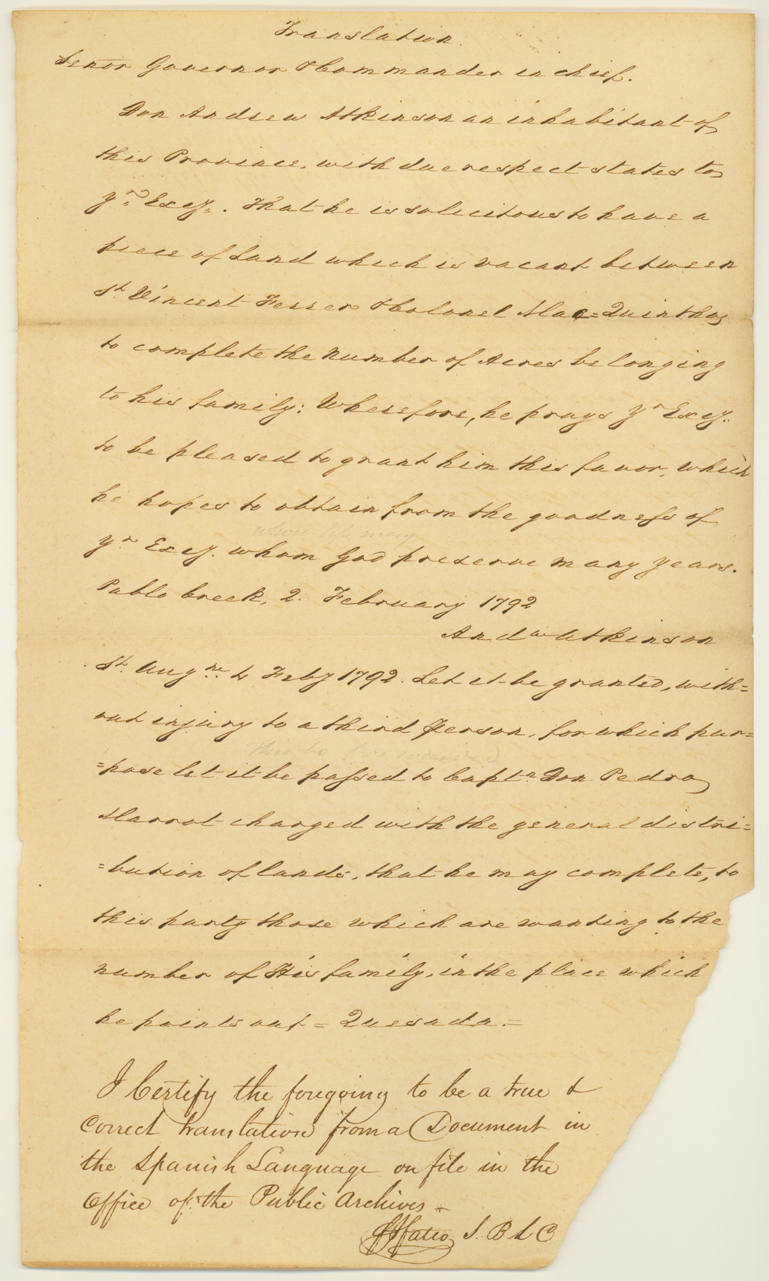 Translation.
Senor Governor & Commander in chief.
Don Andrew Atkinson an inhabitant of
this Province, with due respect states to
yr. Excy. That he is solicitous to have a
piece of Land which is vacant between
St. Vincent Ferrer & Colonel Mac=Quinthos
to complete the number of Acres belonging
to his family: Wherefore, he prays yr Excy.
to be pleased to grant him this favor, which
he hopes to obtain from the goodness of
yr Excy. whom God preserve many years.
Pablo Creek, 2. February 1792
Andw Atkinson
St. Augne. 4 Feby 1792. Let it be granted, with=
out injury to a third Person, for which pur=
=pose let it be passed to Captn Don Pedro
Marrot charged with the general distri=
=bution of lands, that he may complete, to
this party those which are wanting to the
number of His family, in the place which
he points out = Quesada.=
I Certify the foregoing to be a true &
Correct translation from a Document in
the Spanish Language on file in the
Office of the Public Archives
S. B L C